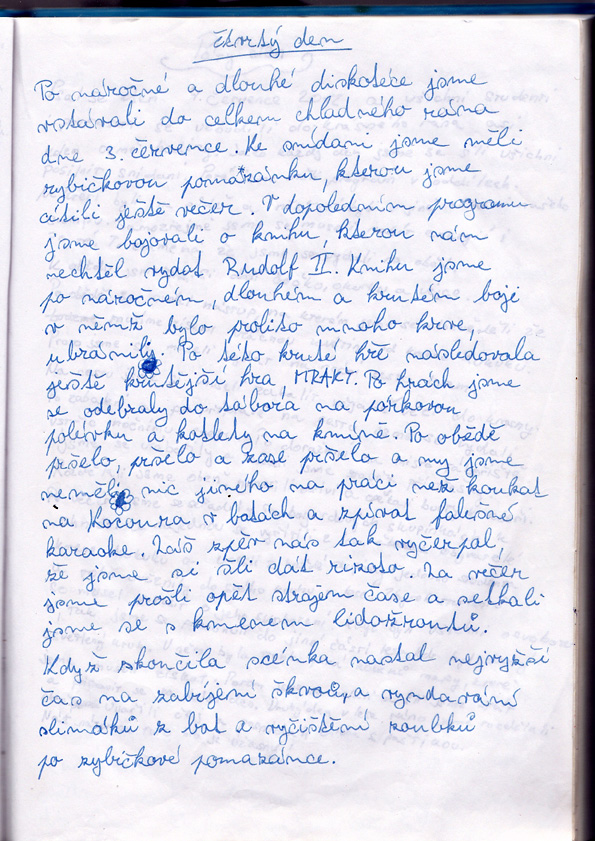 čtvrtý den
Po náročné a dlouhé diskotéce jsme
vstávali do celkem chladného rána
dne 3. července. Ke snídani jsme měli
rybičkovou pomazánku, kterou jsme
cítili ještě večer. V dopoledním programu
jsme bojovali o knihu, kterou nám
nechtěl vydat Rudolf II. Knihu jsme
po náročném, dlouhém a krutém boji
v němž bylo prolito mnoho krve,
ubránily. Po této kruté hře následovala
ještě krutější hra, MRAKY. Po hrách jsme
se odebraly do tábora na párkovou
polévku a kotlety na kmíně. Po obědě
pršelo, pršelo a zase pršelo a my jsme
neměli nic jiného na práci než koukat
na Kocoura v botách a zpívat falešné
karaoke. Záš zpěv nás tak vyčerpal,
že jsme si šli dát rizoto. Za večer
jsme prošli opět strojem čase a setkali
jsme se s kmenem lidožroutů.
Když skončila scénka nastal nejvyšší
čas na zabíjení škvorů, a vyndavání
slimáků z bot a vyčištění zoubků
po rybičkové pomazánce.